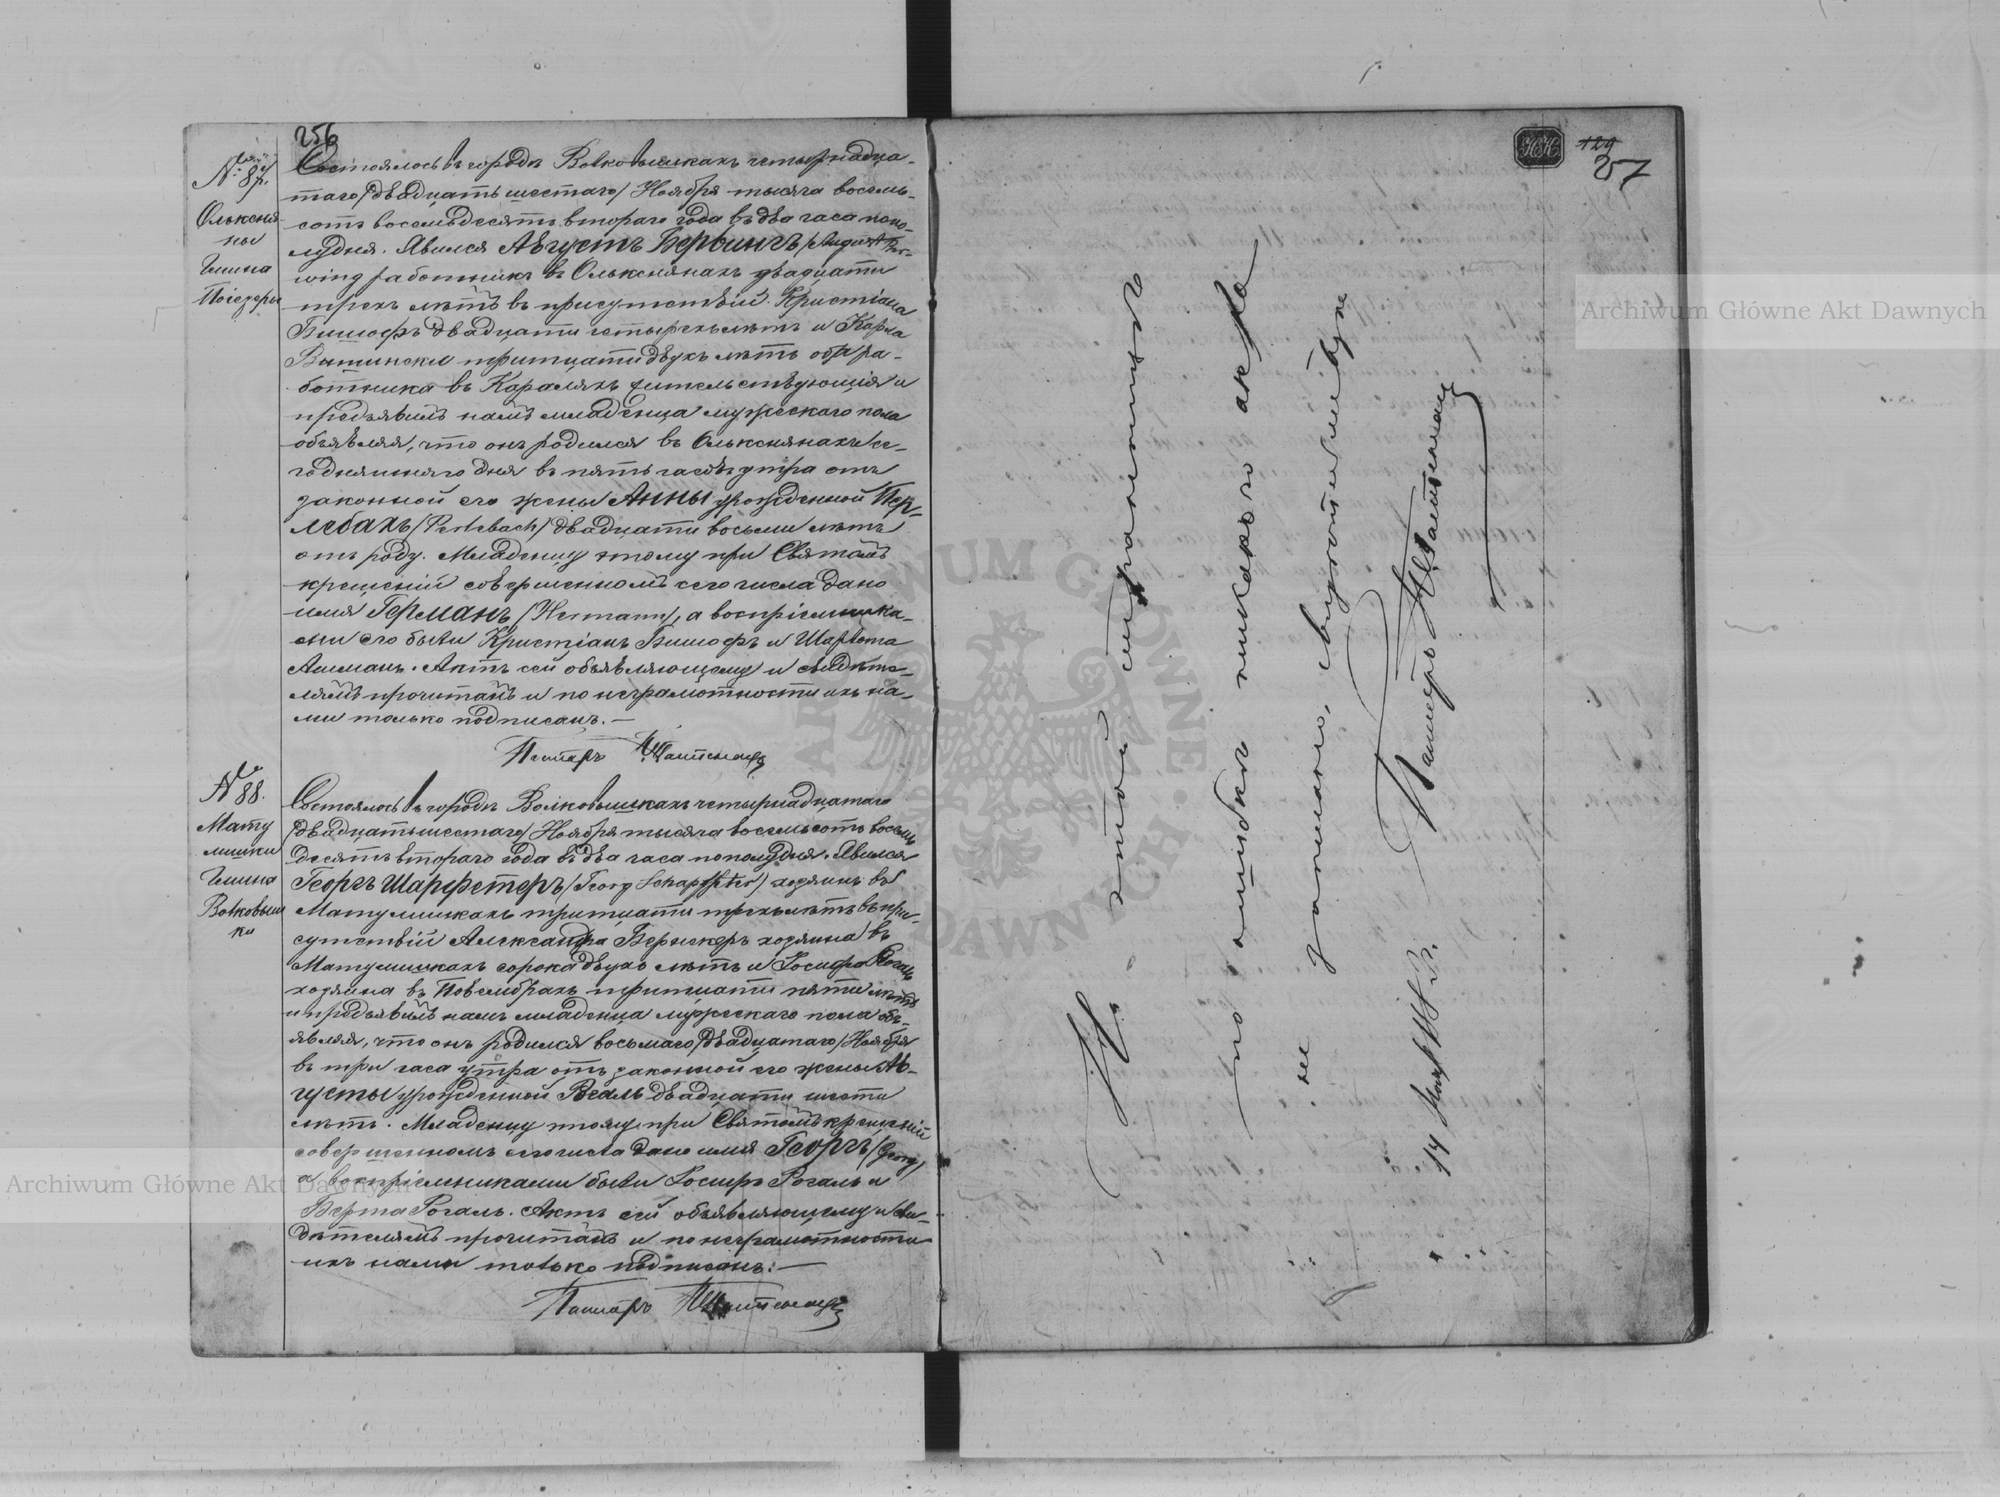 256
№ 87.
Олькснянь
ны
Гмина
Поіезеры
Состоялось въ городѣ Волковышкахъ четырнадца-
таго /двадцать шестаго/ Ноября тысяча восемь-
сотъ восемьдесятъ втораго года въ два часа попо-
лудня. Явился Августъ Бервингъ /August Ber-
wing работникъ въ Олькснянахъ двадцати
трехъ лѣтъ въ присутствіи Кристіана
Бишофъ двадцати четырехъ лѣтъ и Карла
тритцати двухъ лѣтъ оба ра-
ботника въ жительствующія и
предъявилъ намъ младенца мужескаго пола
объявляя, что онъ родился въ Олькснянахъ се-
годняшняго дня въ пять часовъ утра отъ
законной его жены Анны урожденной Пер-
лебахъ /Perlebach/ двадцати восьми лѣтъ
отъ роду. Младенцу этому при Святомъ
крещеніи совершенномъ сего числа дано
имя Германъ /Hermann/, а воспріемника-
ми его были Кристіанъ Бишофъ и Шарлота
Ашманъ. Актъ сей объявляющему и свидѣте-
лямъ прочитанъ и по неграмотности ихъ на-
ми только подписанъ. —
Пасторъ
№ 88.
Мату
лишки
Гмина
Волковыш
ки
Состоялось въ городѣ Волковышкахъ четырнадцатаго
/двадцать шестаго/ Ноября тысяча восемьсотъ восемь
десятъ втораго года въ два часа пополудня. Явился
Георгъ Шарфетеръ /Georg Scharffetter/ хозяинъ въ
Матулишкахъ тритцати трехъ лѣтъ въ при-
сутствіи Александра хозяина въ
Матулишкахъ сорока двухъ лѣтъ и Іосифа Рогаль
хозяина въ тритцати пяти лѣтъ
и предъявилъ намъ младенца мужескаго пола объ-
являя, что онъ родился восьмаго /двадцатаго/ Ноября
въ три часа утра отъ законной его жены Ав-
густы урожденной двадцати шести
лѣтъ. Младенцу этому при Святомъ крещеніи
совершенномъ сего числа дано имя Георгъ /Georg/
а воспріемниками были Іосифъ Рогаль и
Берта Рогаль. Актъ сей объявляющему и сви-
дѣтелямъ прочитанъ и по неграмотности
ихъ нами только подписанъ. —
Пасторъ
НК
129
37
На этой страницѣ
по ошибкѣ никакого акта
не записано, свидѣтельствую
Пасторъ
14
Archiwum Główne Akt Dawnych
Archiwum Główne Akt Dawnych
ARCHIWUM GŁÓWNE AKT DAWNYCH